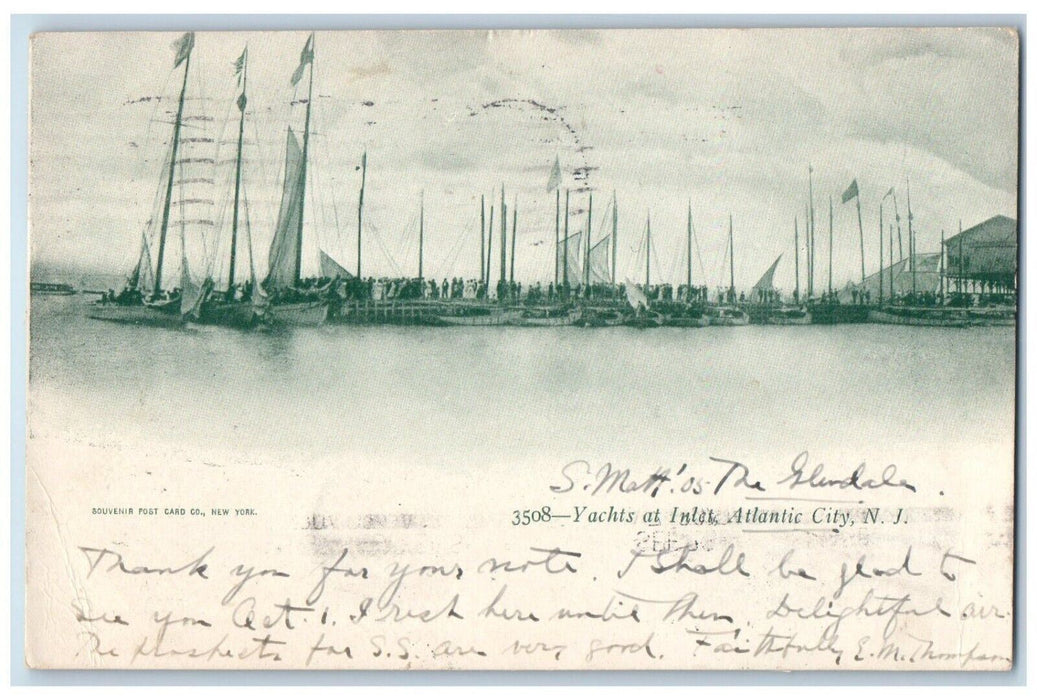 S. Matt. '05 The Glendale.
SOUVENIR POST CARD CO., NEW YORK.
3508—Yachts at Inlet, Atlantic City, N. J.
Thank you for your note. I shall be glad to
see you Oct. 1. I rest here until then. Delightful air.
The prospects for S.S. are very good. Faithfully, E. M. Thompson